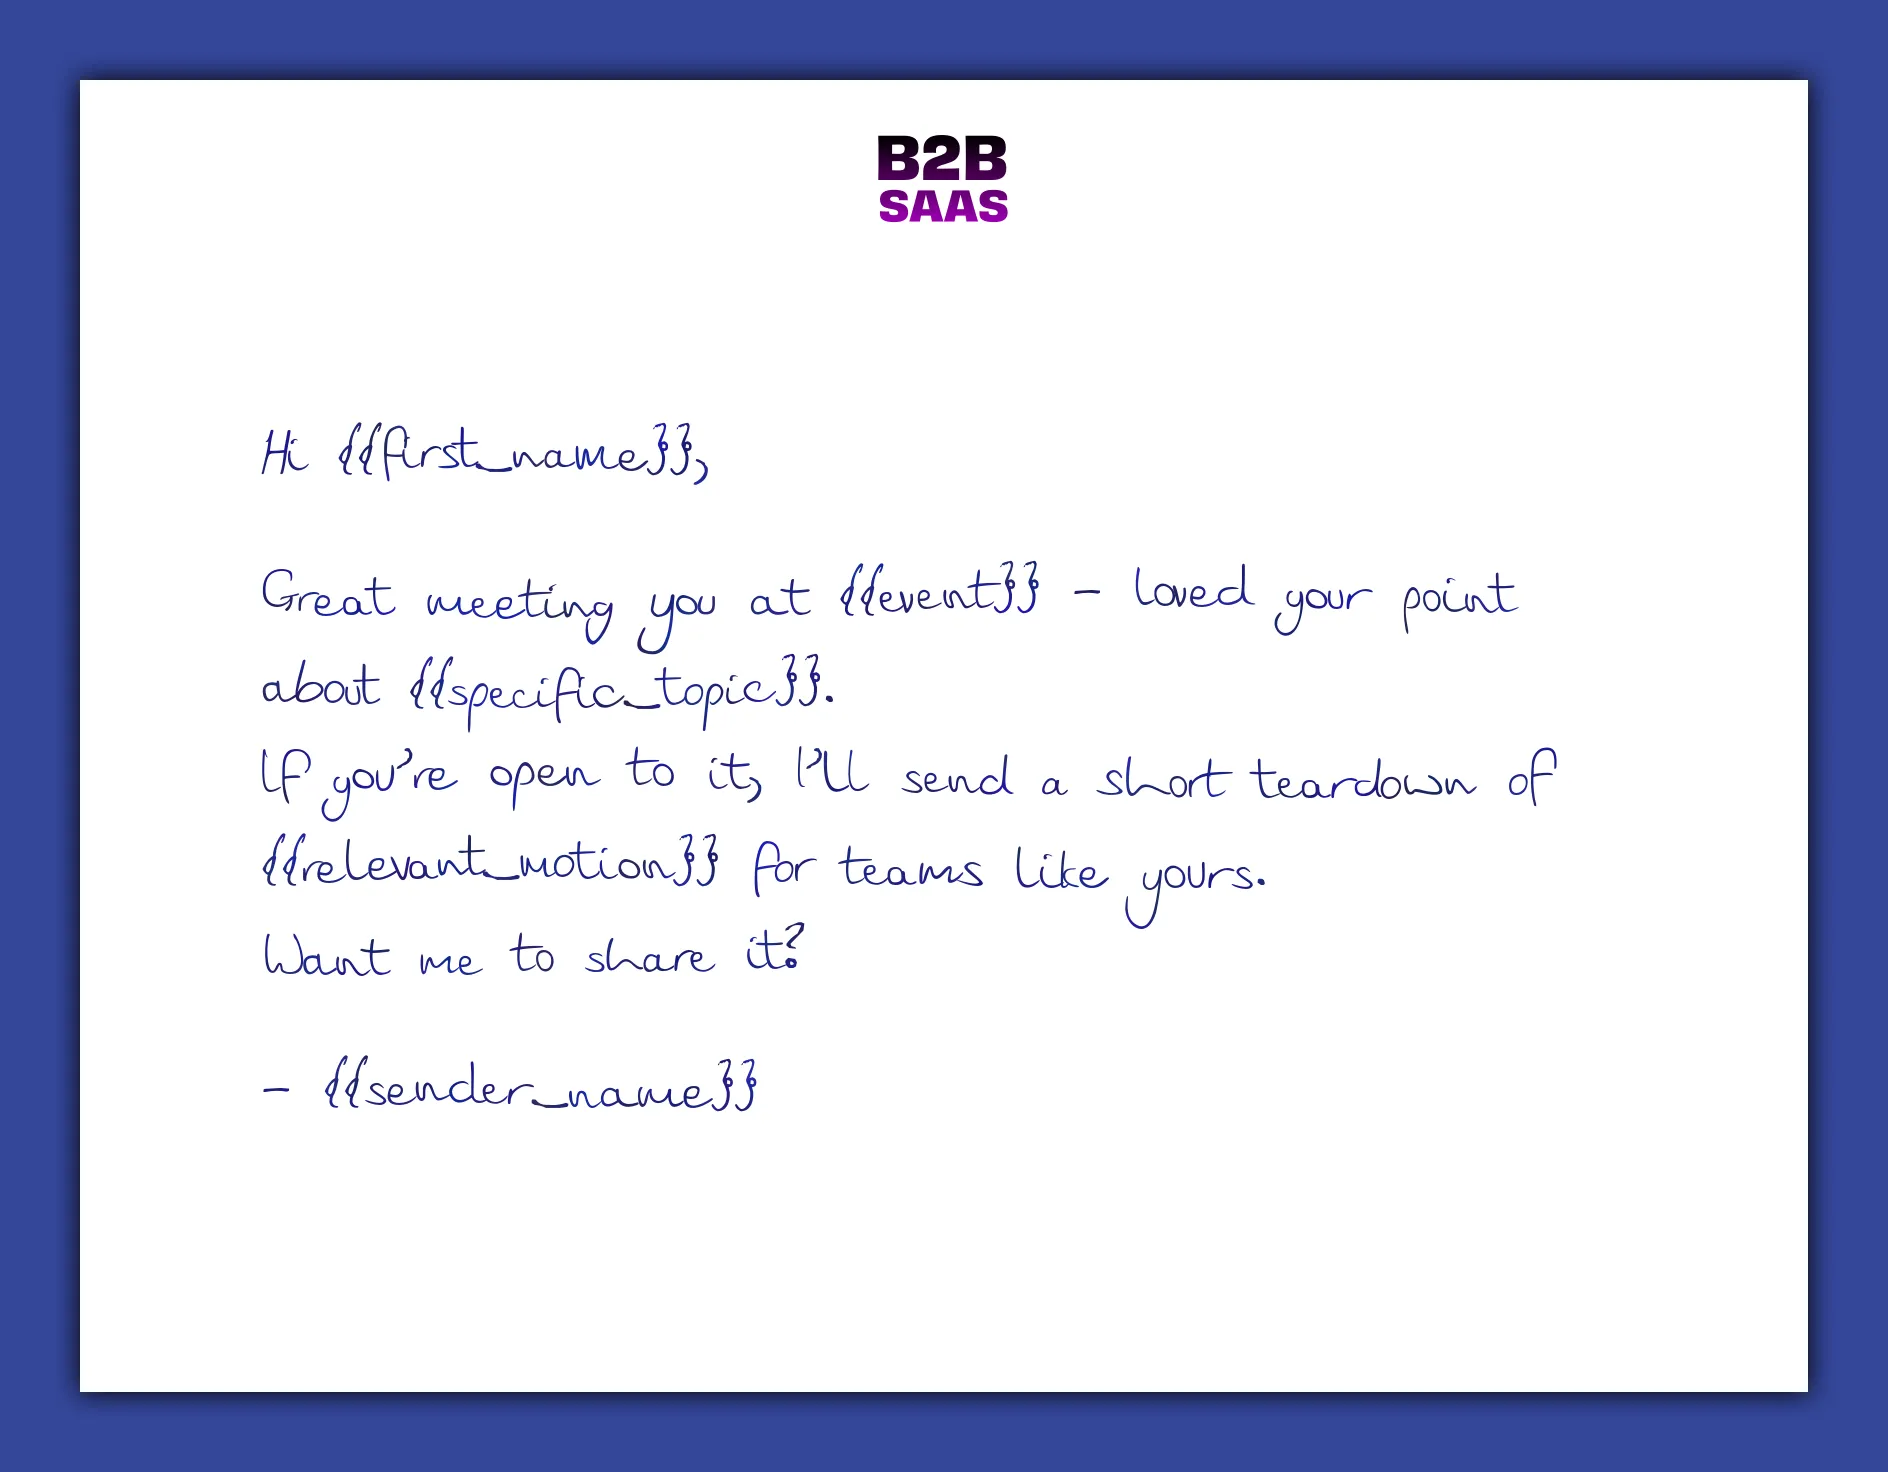 B2B
SAAS
Hi {{first_name}},
Great meeting you at {{event}} - loved your point
about {{specific_topic}}.
If you're open to it, I'll send a short teardown of
{{relevant_motion}} for teams like yours.
Want me to share it?
- {{sender_name}}